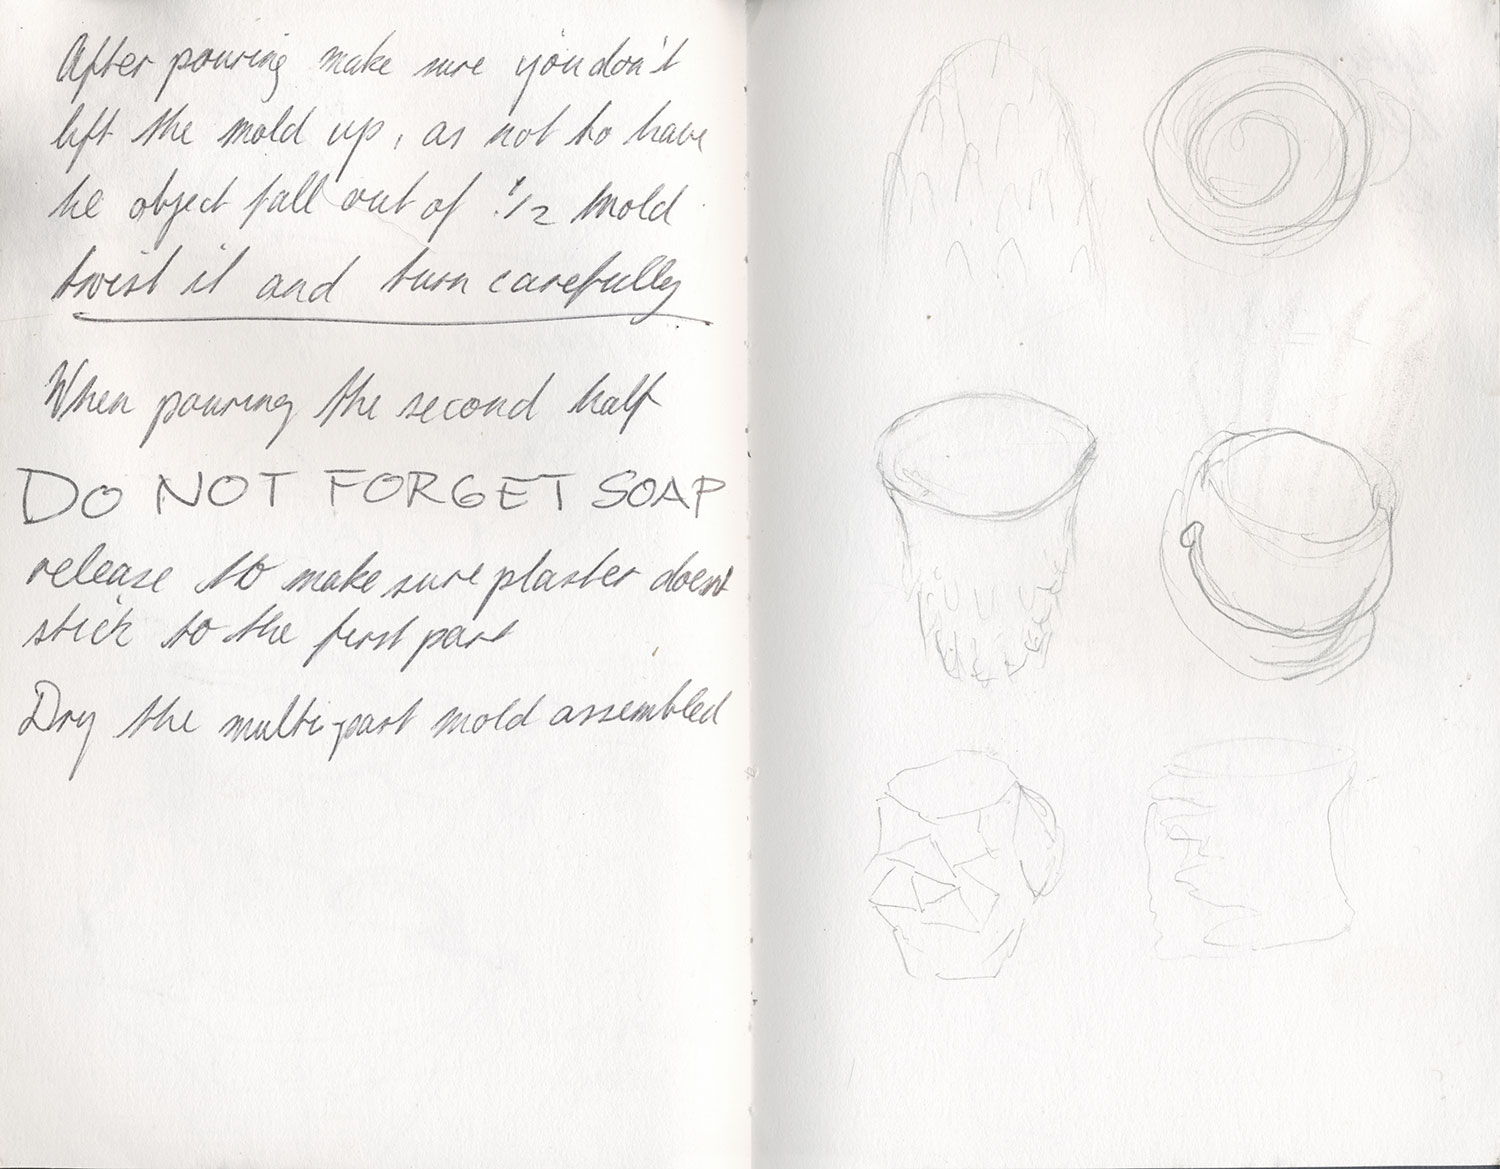 After pouring make sure you don't
lift the mold up, as not to have
he object fall out of 1/2 mold
twist it and turn carefully
When pouring the second half
DO NOT FORGET SOAP
release to make sure plaster doesnt
stick to the first part
Dry the multi-part mold assembled